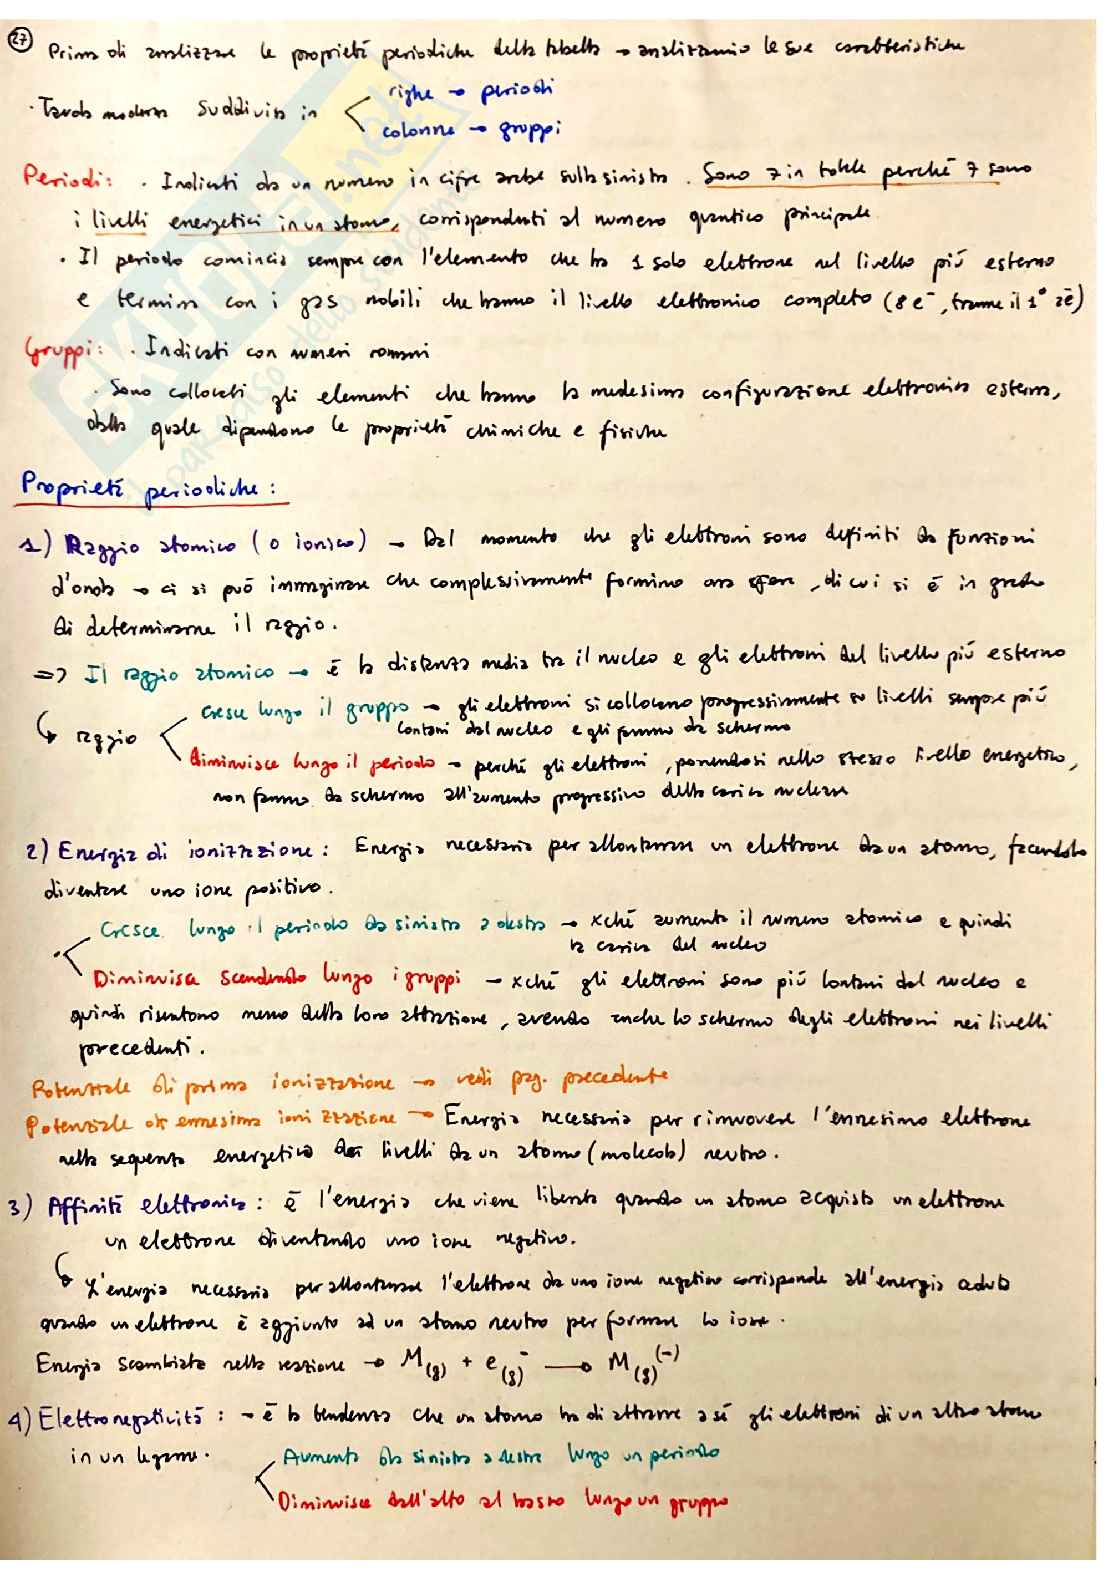 27
Prima di analizzare le proprietà periodiche della tabella → analizziamo le sue caratteristiche
· Tavola moderna suddivisa in
righe → periodi
colonne → gruppi
Periodi: · Indicati da un numero in cifre arabe sulla sinistra. Sono 7 in totale perché 7 sono
i livelli energetici in un atomo, corrispondenti al numero quantico principale
· Il periodo comincia sempre con l'elemento che ha 1 solo elettrone nel livello più esterno
e termina con i gas nobili che hanno il livello elettronico completo (8 e⁻, tranne il 1° 2e⁻)
Gruppi: · Indicati con numeri romani
· Sono collocati gli elementi che hanno la medesima configurazione elettronica esterna,
dalla quale dipendono le proprietà chimiche e fisiche
Proprietà periodiche:
1) Raggio atomico (o ionico) → Dal momento che gli elettroni sono definiti da funzioni
d'onda → ci si può immaginare che complessivamente formino una sfera, di cui si è in grado
di determinarne il raggio.
=> Il raggio atomico → è la distanza media tra il nucleo e gli elettroni del livello più esterno
cresce lungo il gruppo → gli elettroni si collocano progressivamente su livelli sempre più
lontani dal nucleo e gli fanno da schermo
raggio
diminuisce lungo il periodo → perché gli elettroni, ponendosi nello stesso livello energetico,
non fanno da schermo all'aumento progressivo della carica nucleare
2) Energia di ionizzazione: Energia necessaria per allontanare un elettrone da un atomo, facendolo
diventare uno ione positivo.
Cresce lungo il periodo da sinistra a destra → xché aumenta il numero atomico e quindi
la carica del nucleo
Diminuisce scendendo lungo i gruppi → xché gli elettroni sono più lontani dal nucleo e
quindi risentono meno della loro attrazione, avendo anche lo schermo degli elettroni nei livelli
precedenti.
Potenziale di prima ionizzazione → vedi pag. precedente
Potenziale di ennesima ionizzazione → Energia necessaria per rimuovere l'ennesimo elettrone
nella sequenza energetica dei livelli da un atomo (molecola) neutro.
3) Affinità elettronica: è l'energia che viene liberata quando un atomo acquista un elettrone
un elettrone diventando uno ione negativo.
L'energia necessaria per allontanare l'elettrone da uno ione negativo corrisponde all'energia ceduta
quando un elettrone è aggiunto ad un atomo neutro per formare lo ione.
Energia scambiata nella reazione → M(g) + e⁻(g) → M(g)(-)
4) Elettronegatività: → è la tendenza che un atomo ha di attrarre a sé gli elettroni di un altro atomo
in un legame.
Aumenta da sinistra a destra lungo un periodo
Diminuisce dall'alto al basso lungo un gruppo